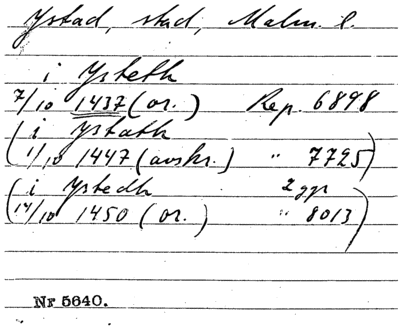 Ystad, stad, Malm. l.
i Ysteth
7/10 1437 (or.) Rep. 6898
(i Ystath
1/10 1447 (avskr.) " 7725)
(i Ystedh 2 ggr
14/10 1450 (or.) " 8013)
Nr 5640.